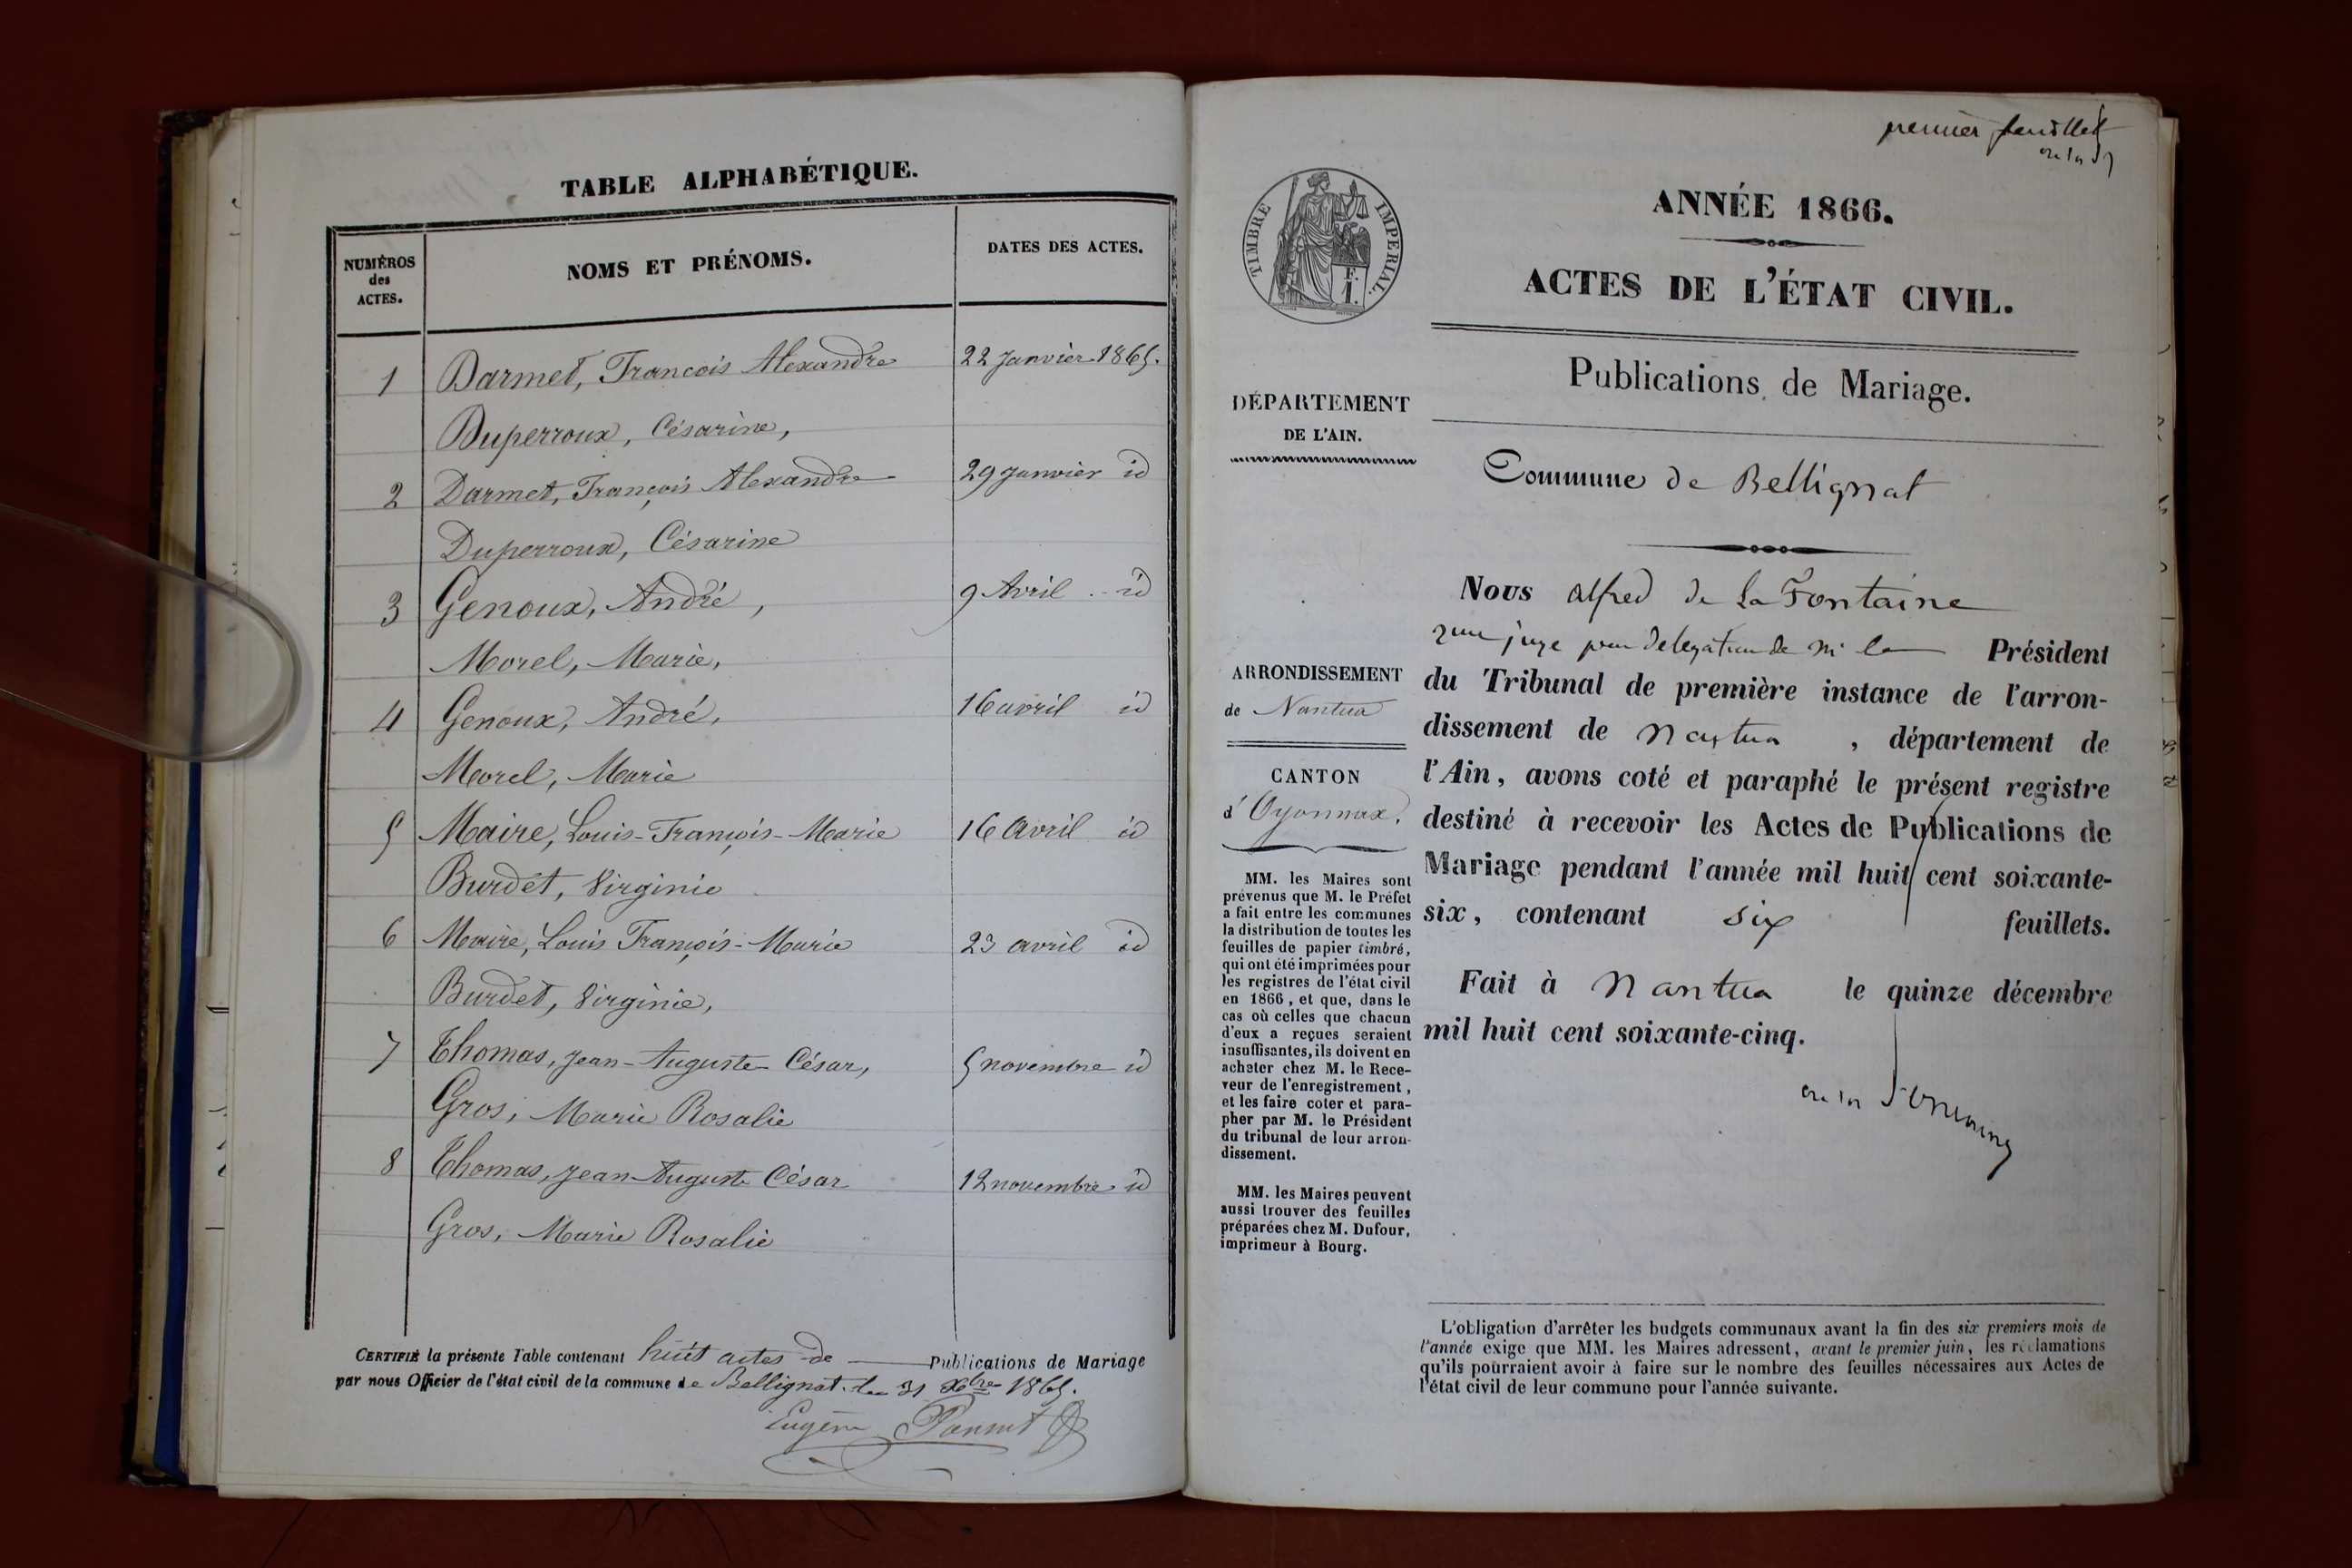 TABLE ALPHABÉTIQUE.
NUMÉROS
des
ACTES.
NOMS ET PRÉNOMS.
DATES DES ACTES.
1 Darmet, Francois Alexandre 22 Janvier 1865.
Duperroux, Césarine,
2 Darmet, François Alexandre 29 Janvier id
Duperroux, Césarine
3 Genoux, André, 9 Avril id
Morel, Marie,
4 Genoux, André, 16 avril id
Morel, Marie
5 Maire, Louis-François-Marie 16 Avril id
Burdet, Virginie
6 Maire, Louis François-Marie 23 avril id
Burdet, Virginie,
7 Thomas, Jean-Auguste César, 5 novembre id
Gros, Marie Rosalie
8 Thomas, Jean-Auguste César 12 novembre id
Gros, Marie Rosalie
CERTIFIÉ la présente Table contenant huit actes de Publications de Mariage
par nous Officier de l'état civil de la commune de Bellignat. le 31 Xbre 1865.
Eugène
premier feuillet
TIMBRE IMPERIAL.
F.
1.
ANNÉE 1866.
ACTES DE L'ÉTAT CIVIL.
Publications de Mariage.
DÉPARTEMENT
DE L'AIN.
Commune de Bellignat
ARRONDISSEMENT
de Nantua
CANTON
d'Oyonnax.
MM. les Maires sont
prévenus que M. le Préfet
a fait entre les communes
la distribution de toutes les
feuilles de papier timbré,
qui ont été imprimées pour
les registres de l'état civil
en 1866, et que, dans le
cas où celles que chacun
d'eux a reçues seraient
insuffisantes, ils doivent en
acheter chez M. le Rece-
veur de l'enregistrement,
et les faire coter et para-
pher par M. le Président
du tribunal de leur arron-
dissement.
MM. les Maires peuvent
aussi trouver des feuilles
préparées chez M. Dufour,
imprimeur à Bourg.
Nous alfred de La Fontaine
juge par delegation de M. le Président
du Tribunal de première instance de l'arron-
dissement de Nantua, département de
l'Ain, avons coté et paraphé le présent registre
destiné à recevoir les Actes de Publications de
Mariage pendant l'année mil huit cent soixante-
six, contenant six feuillets.
Fait à Nantua le quinze décembre
mil huit cent soixante-cinq.
L'obligation d'arrêter les budgets communaux avant la fin des six premiers mois de
l'année exige que MM. les Maires adressent, avant le premier juin, les réclamations
qu'ils pourraient avoir à faire sur le nombre des feuilles nécessaires aux Actes de
l'état civil de leur commune pour l'année suivante.